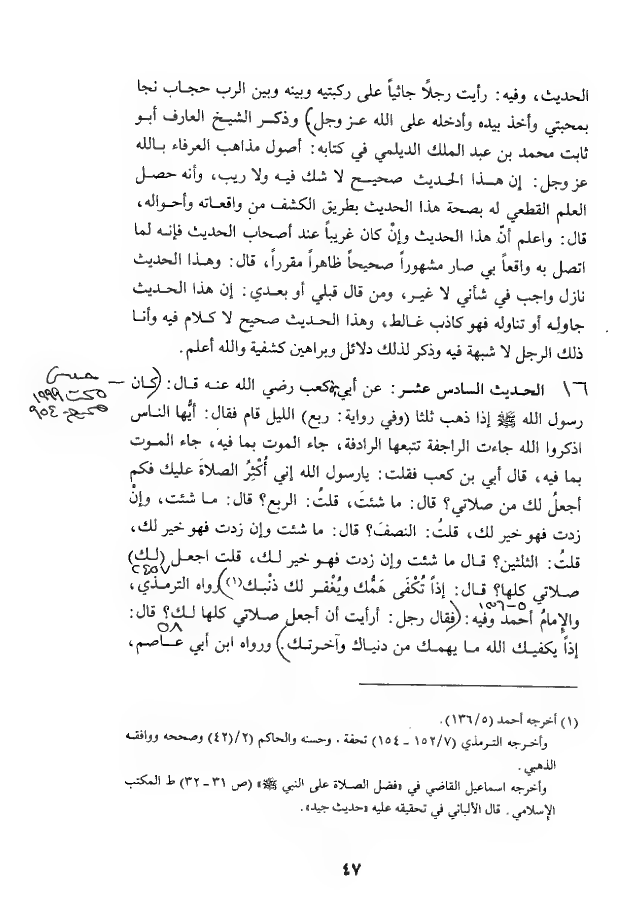 الحديث، وفيه: رأيت رجلاً جاثياً على ركبتيه وبينه وبين الرب حجاب نجا
بمحبتي وأخذ بيده وأدخله على الله عز وجل) وذكر الشيخ العارف أبو
ثابت محمد بن عبد الملك الديلمي في كتابه: أصول مذاهب العرفاء بالله
عز وجل: إن هذا الحديث صحيح لا شك فيه ولا ريب، وأنه حصل
العلم القطعي له بصحة هذا الحديث بطريق الكشف من واقعاته وأحواله،
قال: واعلم أنّ هذا الحديث وإنْ كان غريباً عند أصحاب الحديث فإنه لما
اتصل به واقعاً بي صار مشهوراً صحيحاً ظاهراً مقرراً، قال: وهذا الحديث
نازل واجب في شأني لا غير، ومن قال قبلي أو بعدي: إن هذا الحديث
جاوله أو تناوله فهو كاذب غالط، وهذا الحديث صحيح لا كلام فيه وأنا
ذلك الرجل لا شبهة فيه وذكر لذلك دلائل وبراهين كشفية والله أعلم.
١٦ الحديث السادس عشر: عن أبي كعب رضي الله عنه قال: (كان
رسول الله ﷺ إذا ذهب ثلثا (وفي رواية: ربع) الليل قام فقال: أيُّها الناس
اذكروا الله جاءت الراجفة تتبعها الرادفة، جاء الموت بما فيه، جاء الموت
بما فيه، قال أبي بن كعب فقلت: يارسول الله إني أُكْثِرُ الصلاةَ عليك فكم
أجعلُ لك من صلاتي؟ قال: ما شئتَ، قلتُ: الربع؟ قال: ما شئت، وإنْ
زدت فهو خير لك، قلتُ: النصفَ؟ قال: ما شئت وإن زدت فهو خير لك،
قلتُ: الثلثين؟ قال ما شئت وإن زدت فهو خير لك، قلت اجعل (لك)
صلاتي كلها؟ قال: إذاً تُكْفَى هَمُّك ويُغْفر لك ذنْبك(١)) رواه الترمذي،
٢٤٥٧
والإمامُ أحمد وفيه: (فقال رجل: أرأيت أن أجعل صلاتي كلها لك؟ قال:
إذاً يكفيك الله ما يهمك من دنياك وآخرتك.) ورواه ابن أبي عاصم،
٥٨
(١) أخرجه أحمد (١٣٦/٥).
وأخرجه الترمذي (١٥٢/٧ - ١٥٤) تحفة. وحسنه والحاكم (٢/(٤٢) وصححه ووافقه
الذهبي.
وأخرجه اسماعيل القاضي في «فضل الصلاة على النبي ﷺ» (ص ٣١-٣٢) ط المكتب
الإسلامي. قال الألباني في تحقيقه عليه «حديث جيد».
٤٧